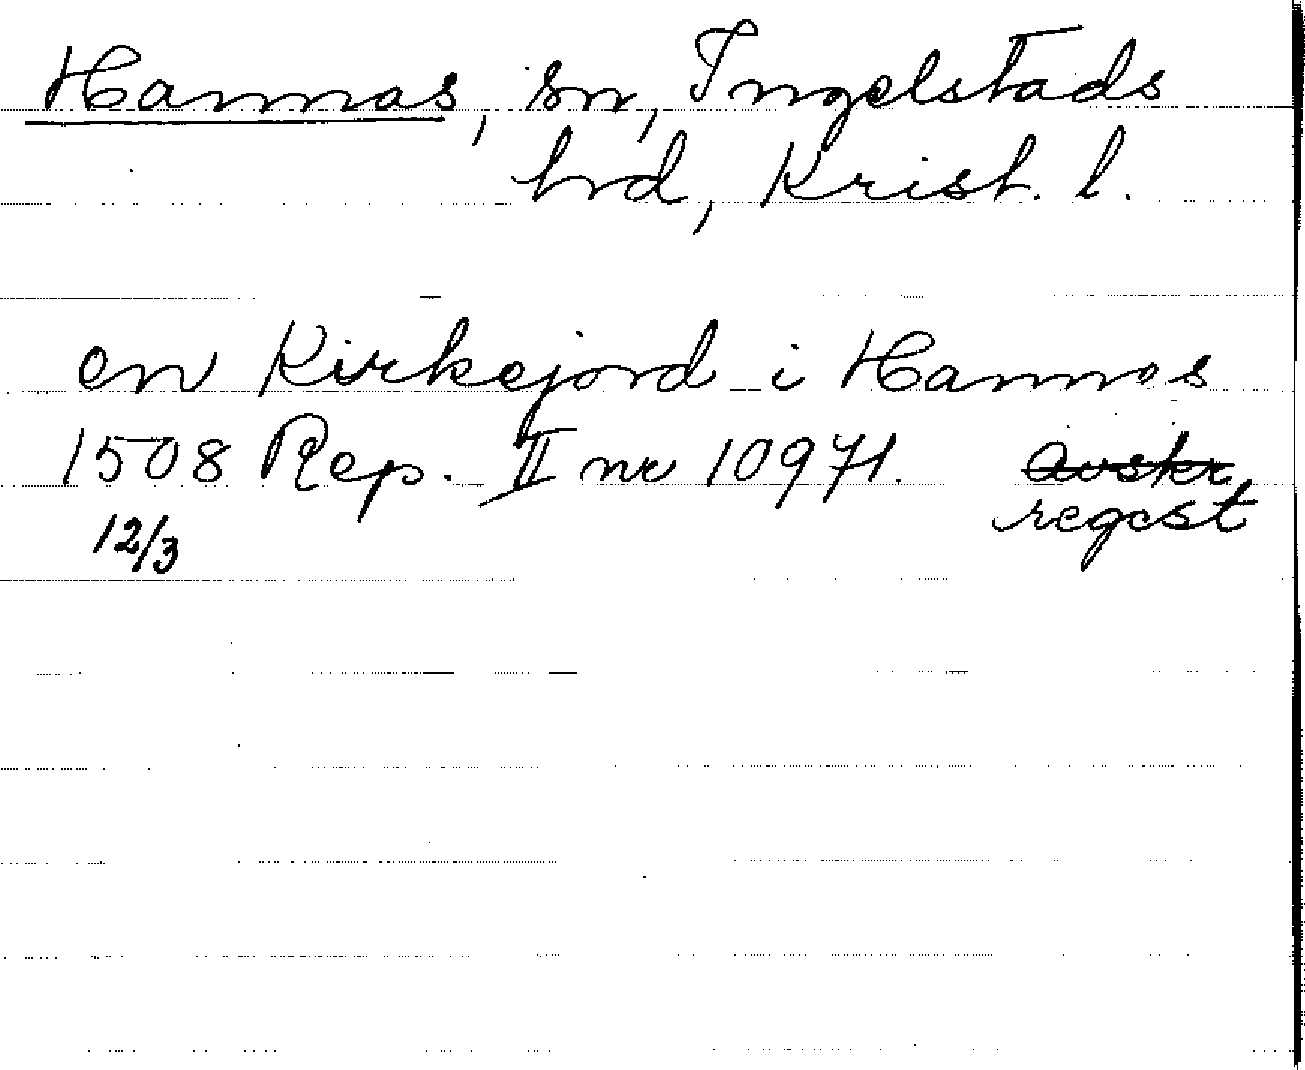 Hannas, sn, Ingelstads
hd, Krist. l.
en Kirkejord i Hannas
1508 Rep. II nr 10971. avskr
12/3 regest